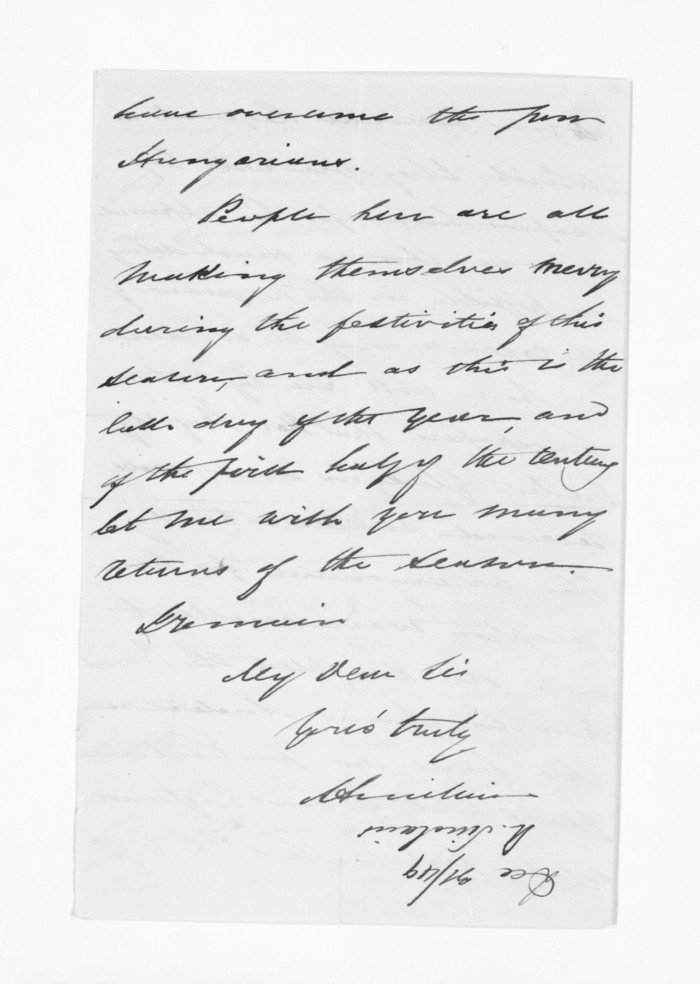 have overcome the poor
Hungarians.
People here are all
making themselves merry
during the festivities of this
season, and as this is the
last day of the year, and
of the first half of the century
let me wish you many
returns of the season.
I remain
My Dear Sir
Yours truly
A Sinclair
A. Sinclair
Dec 31/49